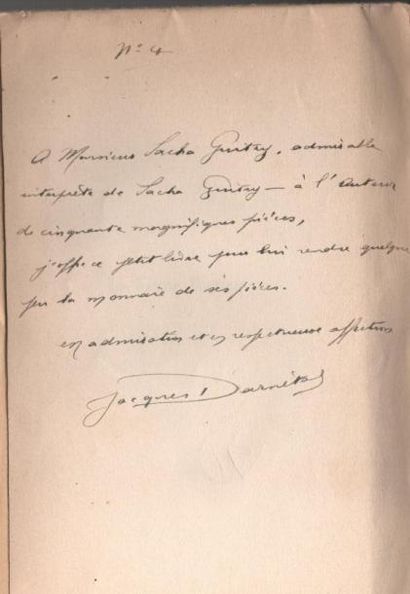 N° 4
A Monsieur Sacha Guitry, admirable
interprète de Sacha Guitry — à l'auteur
de cinquante magnifiques pièces,
j'offre ce petit livre pour lui rendre quelque
peu la monnaie de ses pièces.
en admiration et en respectueuse affection
Jacques Darnétal